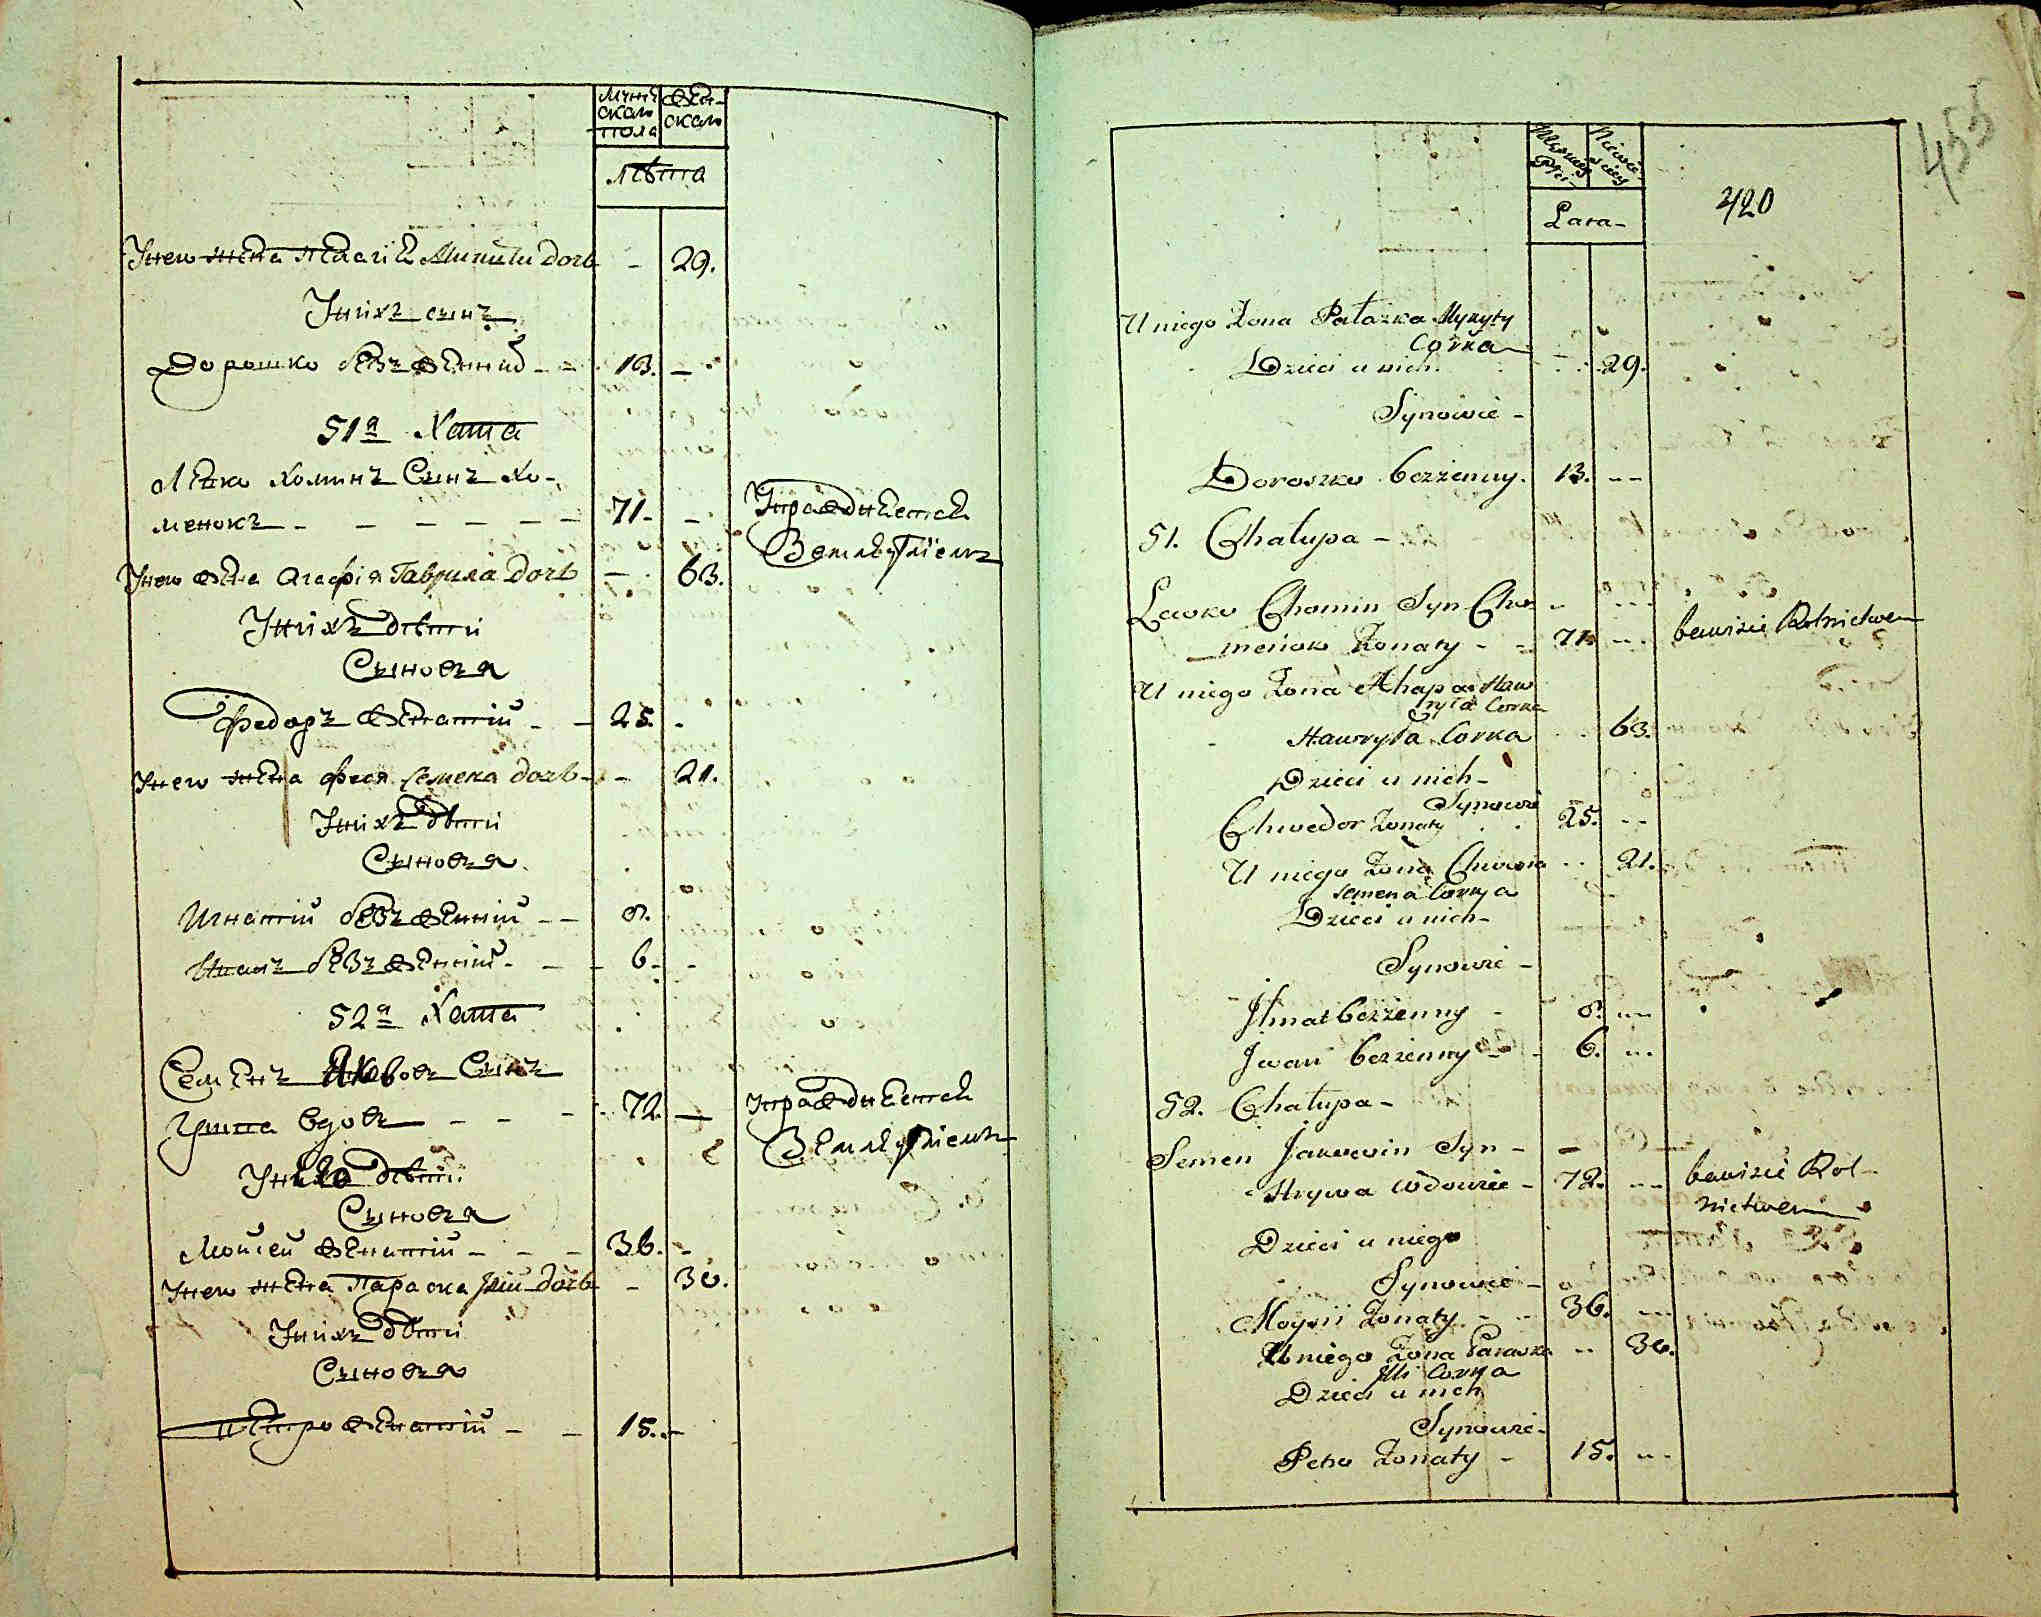 мужескаго пола
женскаго
лѣта
У него жена Пелагія Микиты дочь - 29.
У нихъ сынъ
Дорошко безъ женный - - 13. -
51я Хата
Левко Хоминъ Сынъ Хо-
менокъ - - - - - - 71. -
Упражняется
Земледѣліемъ
У него жена Агафія Гаврила дочь - 63.
У нихъ дѣти
Сыновья
Федоръ женатый - - 25. -
У него жена Феся Семена дочь - - 21.
У нихъ дѣти
Сыновья
Игнатій безъ женный - - 8.
Иванъ безъ женный - - - 6. -
52я Хата
Семенъ Якововъ Сынъ
Грива вдовъ - - - 72. -
Упражняется
Земледѣліемъ
У него дѣти
Сыновья
Мойсей женатый - - - 36. -
У него жена Параска Иліи дочь - 30.
У нихъ дѣти
Сыновья
Петро женатый - - 15. -
455
420
Męzkiey Płci
Niewieściey
Lata -
U niego Żona Pałazka Mykyty
Corka - 29.
Dzieci u nich
Synowie -
Doroszko bezżenny. 13. --
51. Chalupa -
Lewko Chomin Syn Cho-
meniok Żonaty - - 71. --
bawisie Rolnictwem
U niego Żona Ahapa Haw
ryła Corka
Hawryła Corka 63.
Dzieci u nich -
Synowie
Chwedor Żonaty 25. --
U niego Żona Chwesia -- 21.
Semena Corka
Dzieci u nich -
Synowie -
Ihnat bezżenny - 8. --
Iwan bezżenny - - 6. --
52. Chałupa -
Semen Jakowin Syn - -
Hrywa Wdowiec - 72. --
bawisie Rol-
nictwem
Dzieci u niego
Synowie -
Moysii Żonaty - - 36. --
U niego Żona Paraska -- 30.
Illi Corka
Dzieci u nich
Synowie -
Petro Żonaty - 15. --